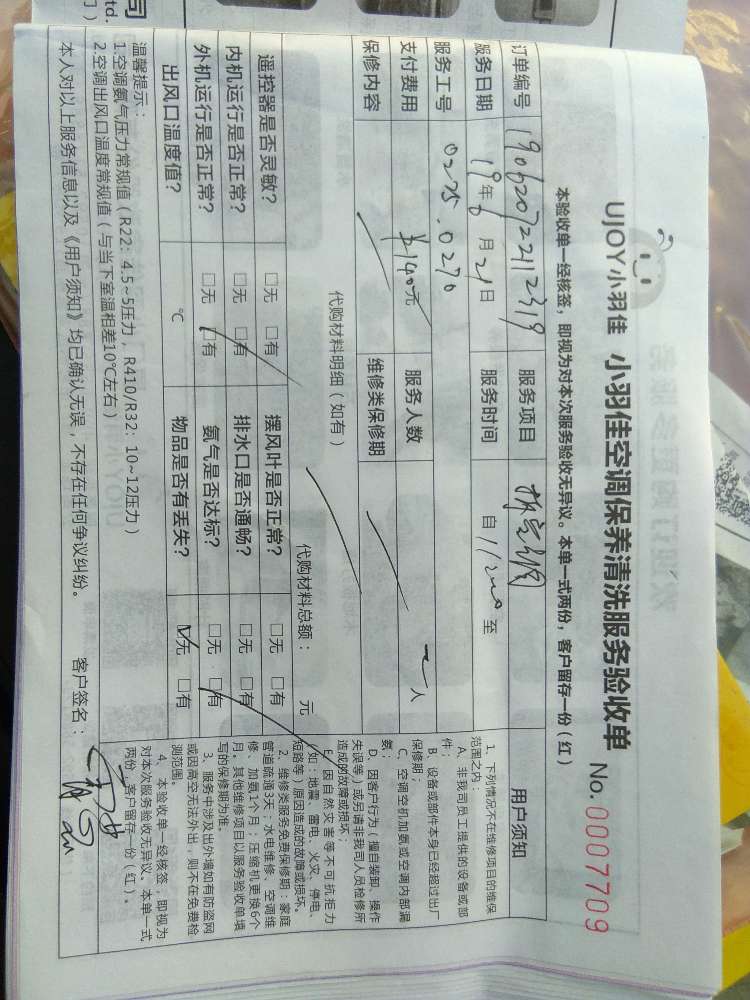 UJOY小羽佳 小羽佳空调保养清洗服务验收单 No.0007709
本验收单一经核签，即视为对本次服务验收无异议。本单一式两份，客户留存一份（红）
订单编号 服务项目
服务日期 19年6月21日 服务时间 自 至
服务工号 0225.0270
支付费用 ¥140元 服务人数 二人
保修内容 维修类保修期
代购材料明细（如有） 代购材料总额： 元
遥控器是否灵敏？ □无 □有 摆风叶是否正常？ □无 □有
内机运行是否正常？ □无 □有 排水口是否通畅？ □无 □有
外机运行是否正常？ □无 □有 氨气是否达标？ □无 □有
出风口温度值？ ℃ 物品是否有丢失？ ☑无 □有
温馨提示：
1.空调氨气压力常规值（R22：4.5~5压力，R410/R32：10~12压力）
2.空调出风口温度常规值（与当下室温相差10℃左右）
本人对以上服务信息以及《用户须知》均已确认无误，不存在任何争议纠纷。 客户签名：
用户须知
1、下列情况不在维修项目的维保
范围之内：
A、非我司员工提供的设备或部
件；
B、设备或部件本身已经超过出厂
保修期；
C、空调空机加氨或空调内部漏
氨；
D、因客户行为（擅自装卸、操作
失误等）或另请非我司人员检修所
造成的故障或损坏；
E、因自然灾害等不可抗拒力
（如：地震、雷电、火灾、停电、
短路等）原因造成的故障或损坏。
2、维修类服务免费保修期：家庭
管道疏通3天；水电维修、空调维
修、加氨1个月；压缩机更换6个
月。其他维修项目以服务验收单填
写的保修期为准。
3、服务中涉及出外墙如有防盗网
或因高空无法外出，则不在免费检
测范围。
4、本验收单一经核签，即视为
对本次服务验收无异议。本单一式
两份，客户留存一份（红）。
司
td.